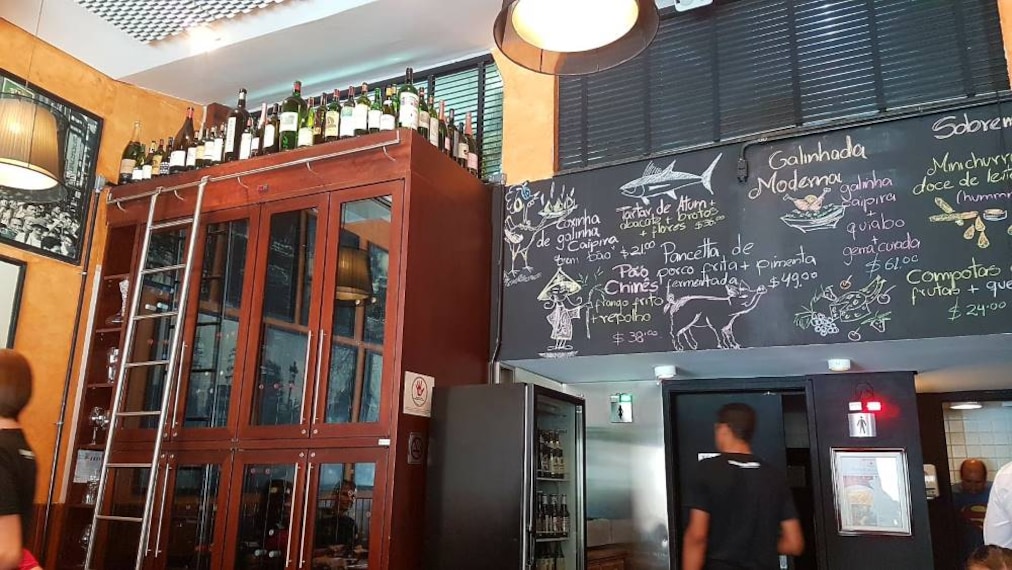 Coxinha
de galinha
Caipira
$21.00
Tartar de Atum +
abacate + brotos
+ flores
Pancetta de
porco frita + pimenta
fermentada
$49.00
Chinês
frango frito
+ repolho
$38.00
Galinhada
Moderna
galinha
caipira
+
quiabo
+
gema curada
$61.00
Sobrem
Minichurr
doce de lei
Compotas
frutas + que
$24.00